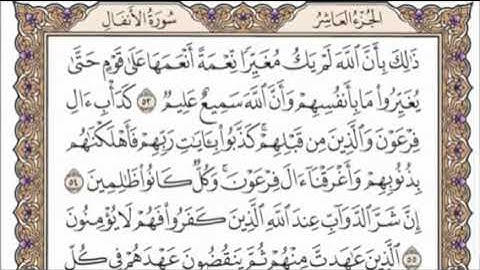 الجزء العاشر
سورة الأنفال
ذَٰلِكَ بِأَنَّ ٱللَّهَ لَمْ يَكُ مُغَيِّرًا نِّعْمَةً أَنْعَمَهَا عَلَىٰ قَوْمٍ حَتَّىٰ
يُغَيِّرُوا۟ مَا بِأَنفُسِهِمْ وَأَنَّ ٱللَّهَ سَمِيعٌ عَلِيمٌ ٥٣ كَدَأْبِ ءَالِ
فِرْعَوْنَ وَٱلَّذِينَ مِن قَبْلِهِمْ كَذَّبُوا۟ بِـَٔايَٰتِ رَبِّهِمْ فَأَهْلَكْنَٰهُم
بِذُنُوبِهِمْ وَأَغْرَقْنَآ ءَالَ فِرْعَوْنَ وَكُلٌّ كَانُوا۟ ظَٰلِمِينَ ٥٤
إِنَّ شَرَّ ٱلدَّوَآبِّ عِندَ ٱللَّهِ ٱلَّذِينَ كَفَرُوا۟ فَهُمْ لَا يُؤْمِنُونَ ٥٥
ٱلَّذِينَ عَٰهَدتَّ مِنْهُمْ ثُمَّ يَنقُضُونَ عَهْدَهُمْ فِى كُلِّ